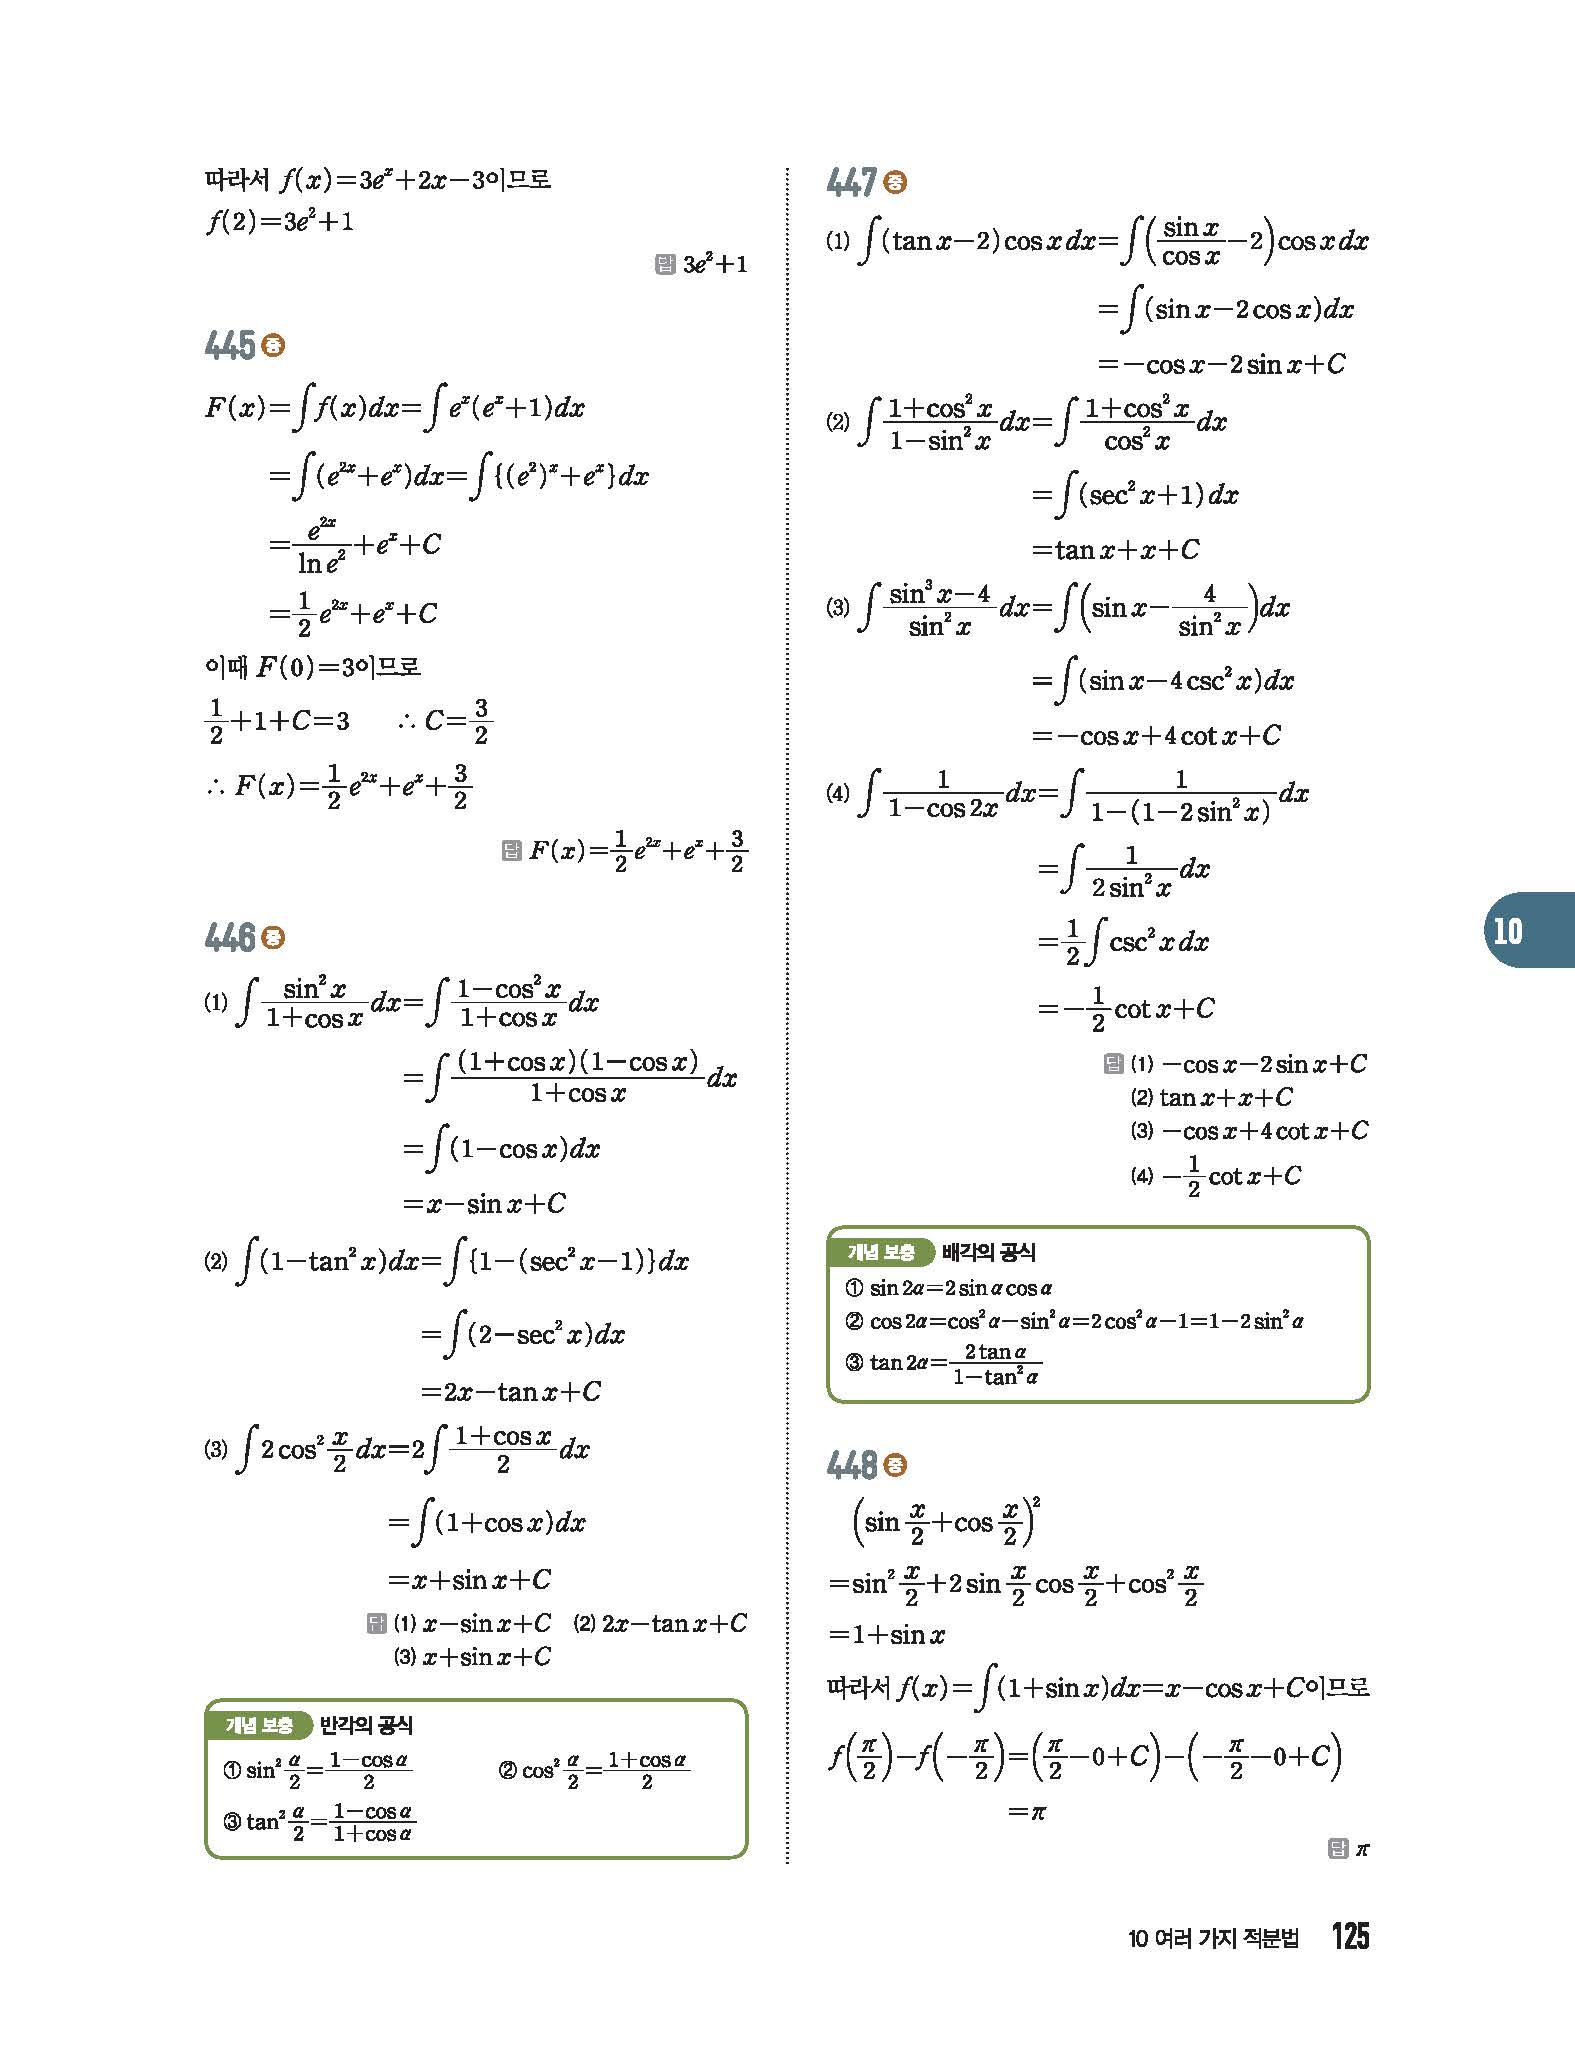 따라서 f(x)=3e^x+2x-3이므로
f(2)=3e²+1
답 3e²+1
445 중
F(x)=∫f(x)dx=∫e^x(e^x+1)dx
=∫(e^{2x}+e^x)dx=∫{(e²)^x+e^x}dx
=\frac{e^{2x}}{ln e²}+e^x+C
=\frac{1}{2}e^{2x}+e^x+C
이때 F(0)=3이므로
\frac{1}{2}+1+C=3 ∴ C=\frac{3}{2}
∴ F(x)=\frac{1}{2}e^{2x}+e^x+\frac{3}{2}
답 F(x)=\frac{1}{2}e^{2x}+e^x+\frac{3}{2}
446 중
(1) ∫\frac{sin² x}{1+cos x}dx=∫\frac{1-cos² x}{1+cos x}dx
=∫\frac{(1+cos x)(1-cos x)}{1+cos x}dx
=∫(1-cos x)dx
=x-sin x+C
(2) ∫(1-tan² x)dx=∫{1-(sec² x-1)}dx
=∫(2-sec² x)dx
=2x-tan x+C
(3) ∫2 cos² \frac{x}{2}dx=2∫\frac{1+cos x}{2}dx
=∫(1+cos x)dx
=x+sin x+C
답 (1) x-sin x+C (2) 2x-tan x+C
(3) x+sin x+C
개념 보충 반각의 공식
① sin² \frac{α}{2}=\frac{1-cos α}{2} ② cos² \frac{α}{2}=\frac{1+cos α}{2}
③ tan² \frac{α}{2}=\frac{1-cos α}{1+cos α}
447 중
(1) ∫(tan x-2)cos x dx=∫(\frac{sin x}{cos x}-2)cos x dx
=∫(sin x-2 cos x)dx
=-cos x-2 sin x+C
(2) ∫\frac{1+cos² x}{1-sin² x}dx=∫\frac{1+cos² x}{cos² x}dx
=∫(sec² x+1)dx
=tan x+x+C
(3) ∫\frac{sin³ x-4}{sin² x}dx=∫(sin x-\frac{4}{sin² x})dx
=∫(sin x-4 csc² x)dx
=-cos x+4 cot x+C
(4) ∫\frac{1}{1-cos 2x}dx=∫\frac{1}{1-(1-2 sin² x)}dx
=∫\frac{1}{2 sin² x}dx
=\frac{1}{2}∫csc² x dx
=-\frac{1}{2}cot x+C
답 (1) -cos x-2 sin x+C
(2) tan x+x+C
(3) -cos x+4 cot x+C
(4) -\frac{1}{2}cot x+C
개념 보충 배각의 공식
① sin 2α=2 sin α cos α
② cos 2α=cos² α-sin² α=2 cos² α-1=1-2 sin² α
③ tan 2α=\frac{2 tan α}{1-tan² α}
448 중
(sin \frac{x}{2}+cos \frac{x}{2})²
=sin² \frac{x}{2}+2 sin \frac{x}{2} cos \frac{x}{2}+cos² \frac{x}{2}
=1+sin x
따라서 f(x)=∫(1+sin x)dx=x-cos x+C이므로
f(\frac{π}{2})-f(-\frac{π}{2})=(\frac{π}{2}-0+C)-(-\frac{π}{2}-0+C)
=π
답 π
10
10 여러 가지 적분법 125